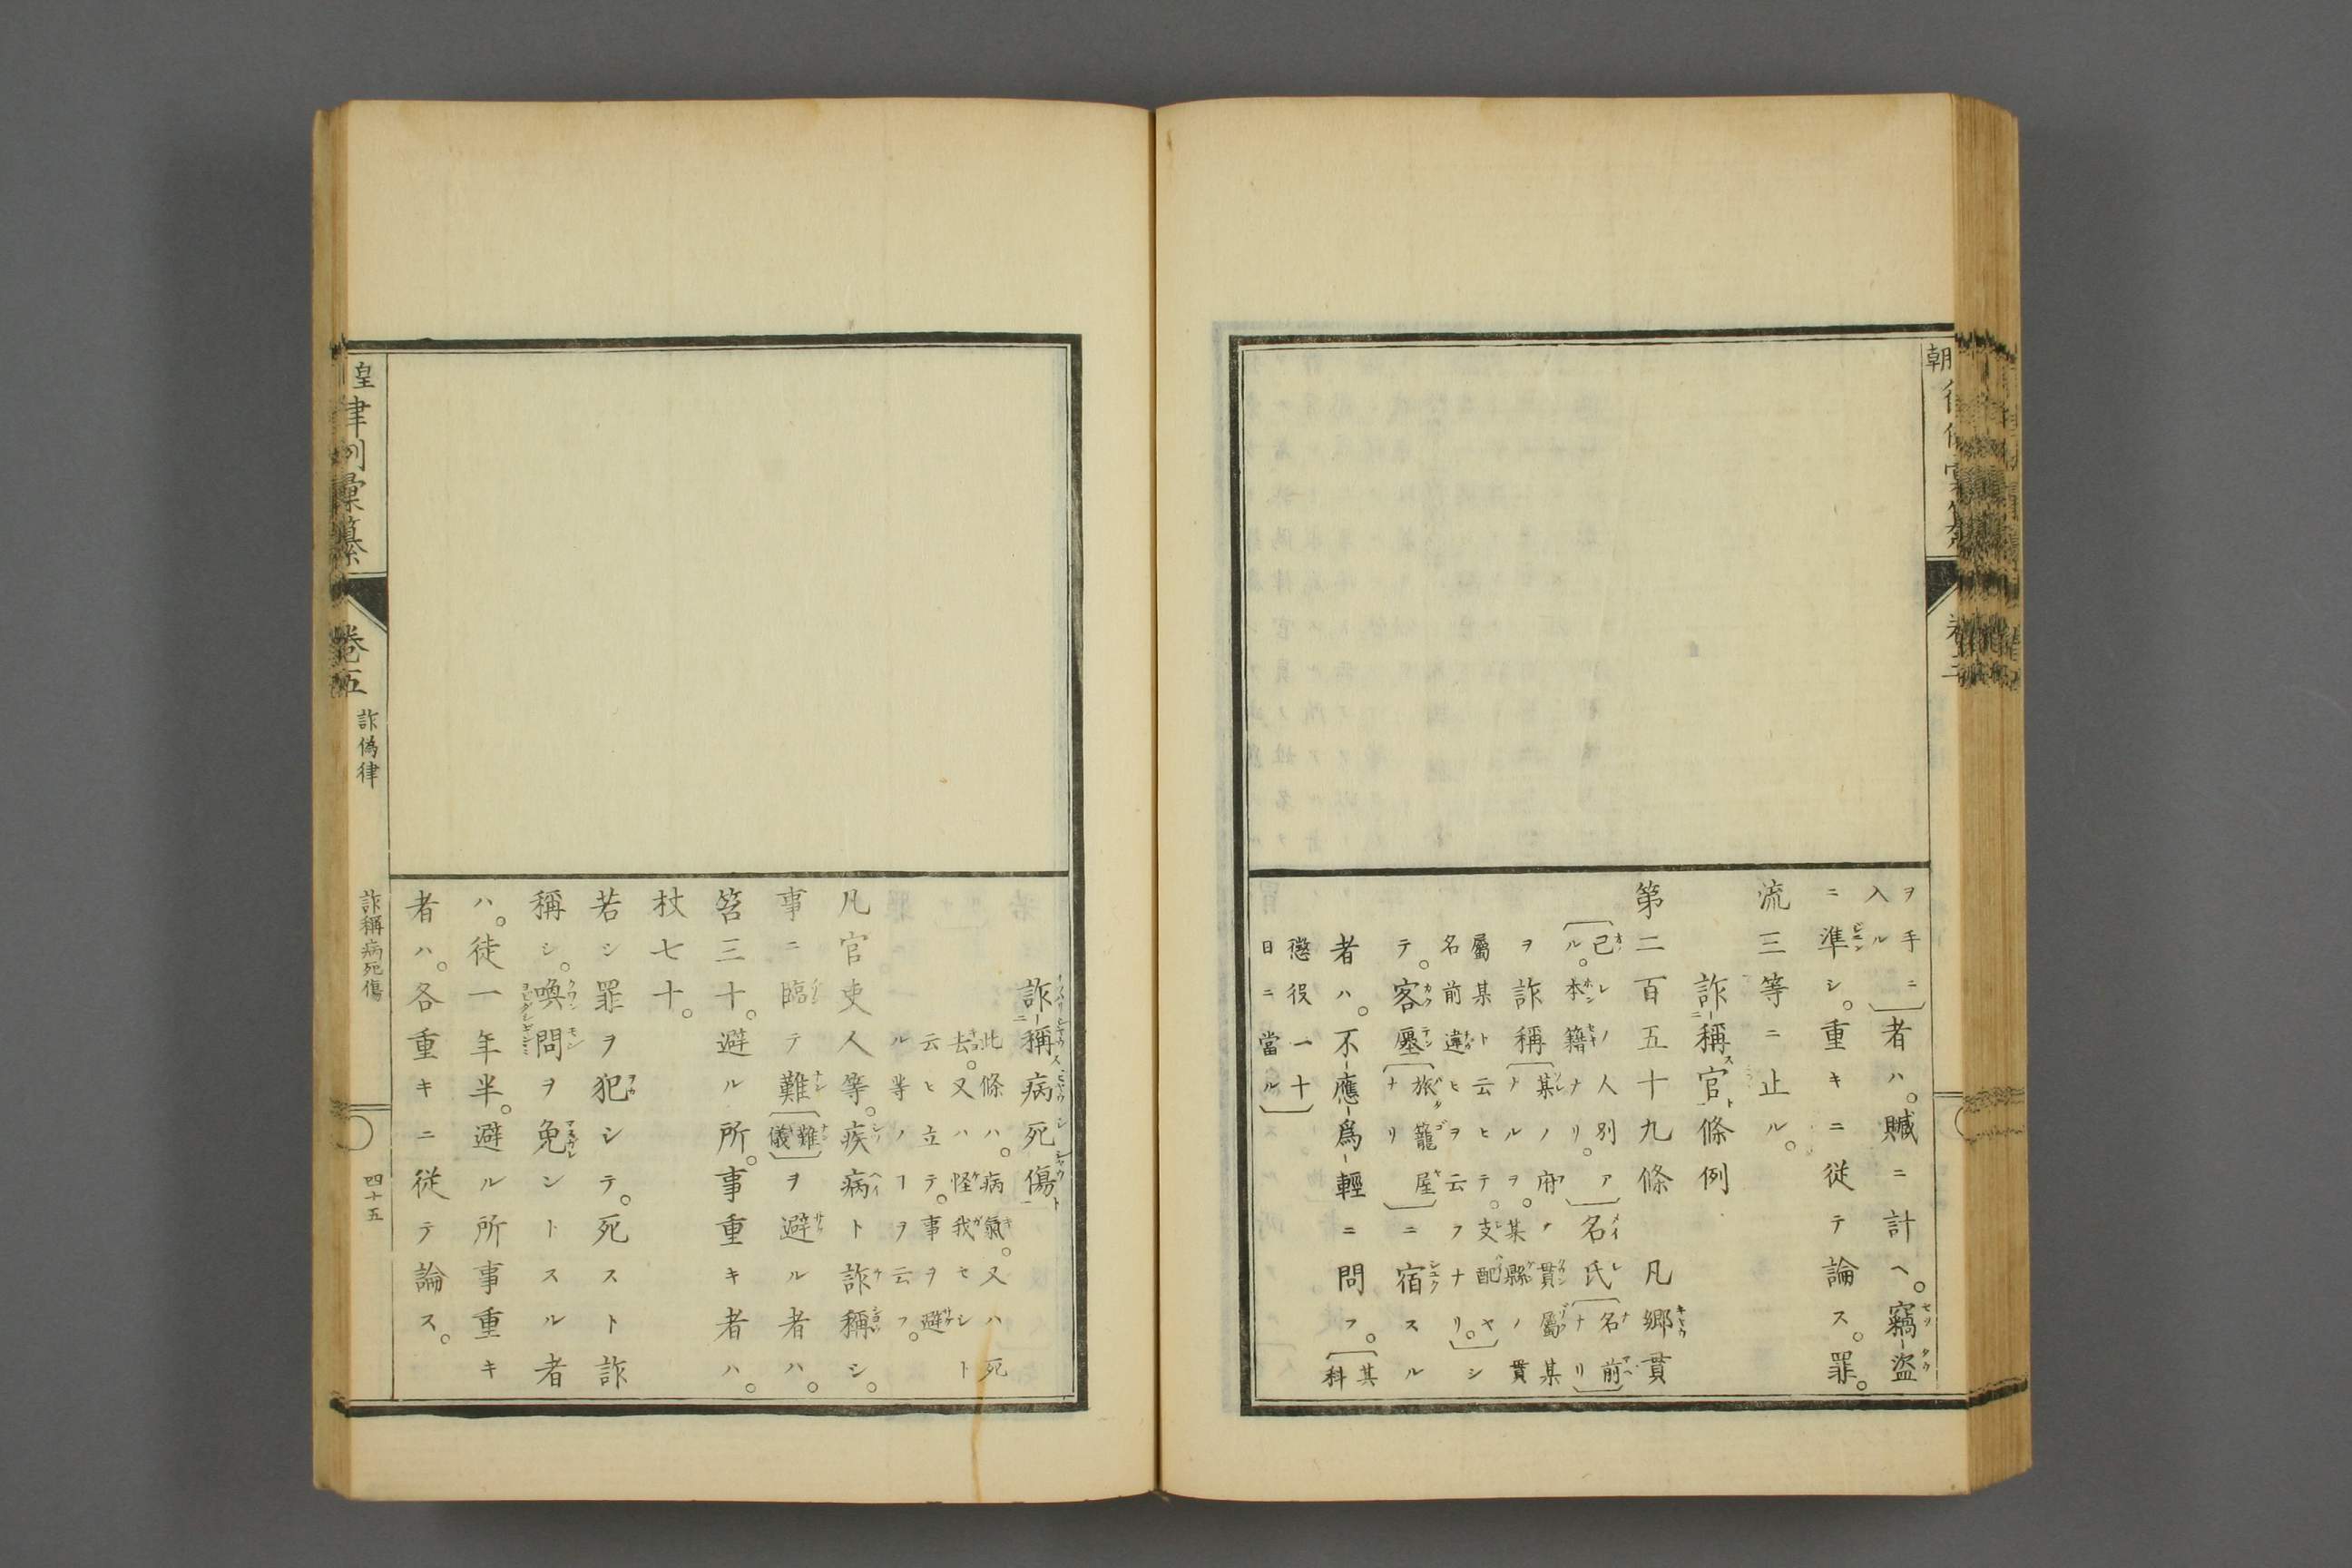 ヲ手ニ入ル〕者ハ。贓ニ計ヘ。竊盗
ニ準シ。重キニ従テ論ス。罪。
流三等ニ止ル。
詐稱官條例
第二百五十九條　凡郷貫
〔己レノ人別アル。本籍ナリ。〕名氏〔名前ナリ〕
ヲ詐稱〔某ノ府ノ貫屬某ナルヲ。某縣ノ貫
屬某ト云ヒテ。支配ヤ名前違ヒヲ云フナリ。〕シ
テ。客廛〔旅籠屋ナリ〕ニ宿スル
者ハ。不應爲輕ニ問フ。〔其科
懲役一十日ニ當ル〕
詐稱病死傷
此條ハ。病氣。又ハ死去。又ハ怪我セシト
云ヒ立テ。事ヲ避ル等ノヿヲ云フ。
凡官吏人等。疾病ト詐稱シ。
事ニ臨テ難〔難儀〕ヲ避ル者ハ。
笞三十。避ル所。事重キ者ハ。
杖七十。
若シ罪ヲ犯シテ。死スト詐
稱シ。喚問ヲ免ントスル者
ハ。徒一年半。避ル所事重キ
者ハ。各重キニ従テ論ス。
皇
律例彙纂
卷五
詐偽律
詐稱病死傷
四十五